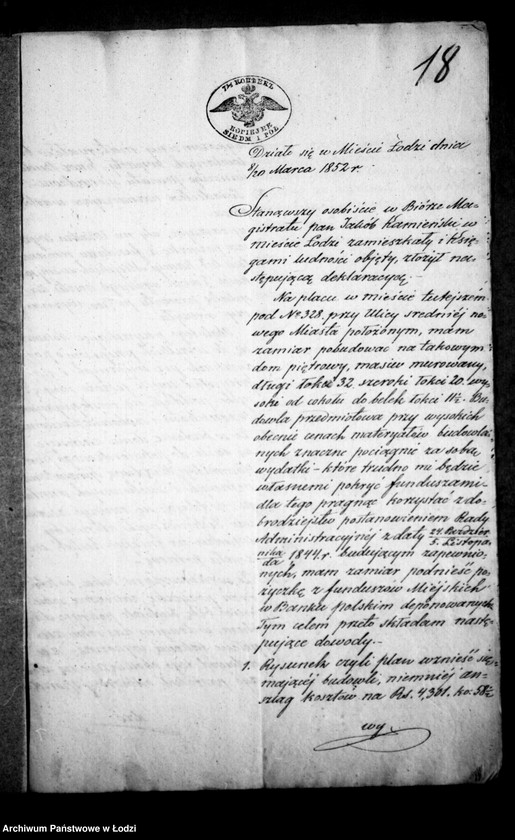 18
7½ КОПѢЕКЪ
KOPIEJEK
SIEDM I PÓŁ
Działo się w Mieście Łodzi dnia
8/20 Marca 1852 r.
Stanąwszy osobiście w Biórze Ma-
gistratu pan Jakób Kamieński w
mieście Łodzi zamieszkały i księ-
gami ludności objęty, złożył na-
stępującą deklaracyę.
Na placu w mieście tutejszem
pod No 328. przy Ulicy średniéj no-
wego Miasta położonym, mam
zamiar pobudować na takowym
dom piętrowy, massiv murowany,
długi łokci 32. szeroki łokci 20. wy-
soki od cokołu do belek łokci 11½. Bu-
dowla przedmiotowa przy wysokich
obecnie cenach materyałów budowla-
nych znaczne pociągnie za sobą
wydatki – które trudno mi będzie
własnemi pokryć funduszami
dla tego pragnąc korzystać z do-
brodziejstw postanowieniem Rady
Administracyjnéj z daty 24. Paździer-
nika / 5. Listopa-
da 1844. r. budującym zapewnio-
nych, mam zamiar podnieść po-
życzkę z funduszów Miejskich
w Banku polskim deponowanych
Tym celem przeto składam nastę-
pujące dowody.
1. Rysunek czyli plan wznieść się
mającéj budowli, niemniéj an-
szlag kosztów na Rs. 4,301. ko: 58½
wy.
Archiwum Państwowe w Łodzi